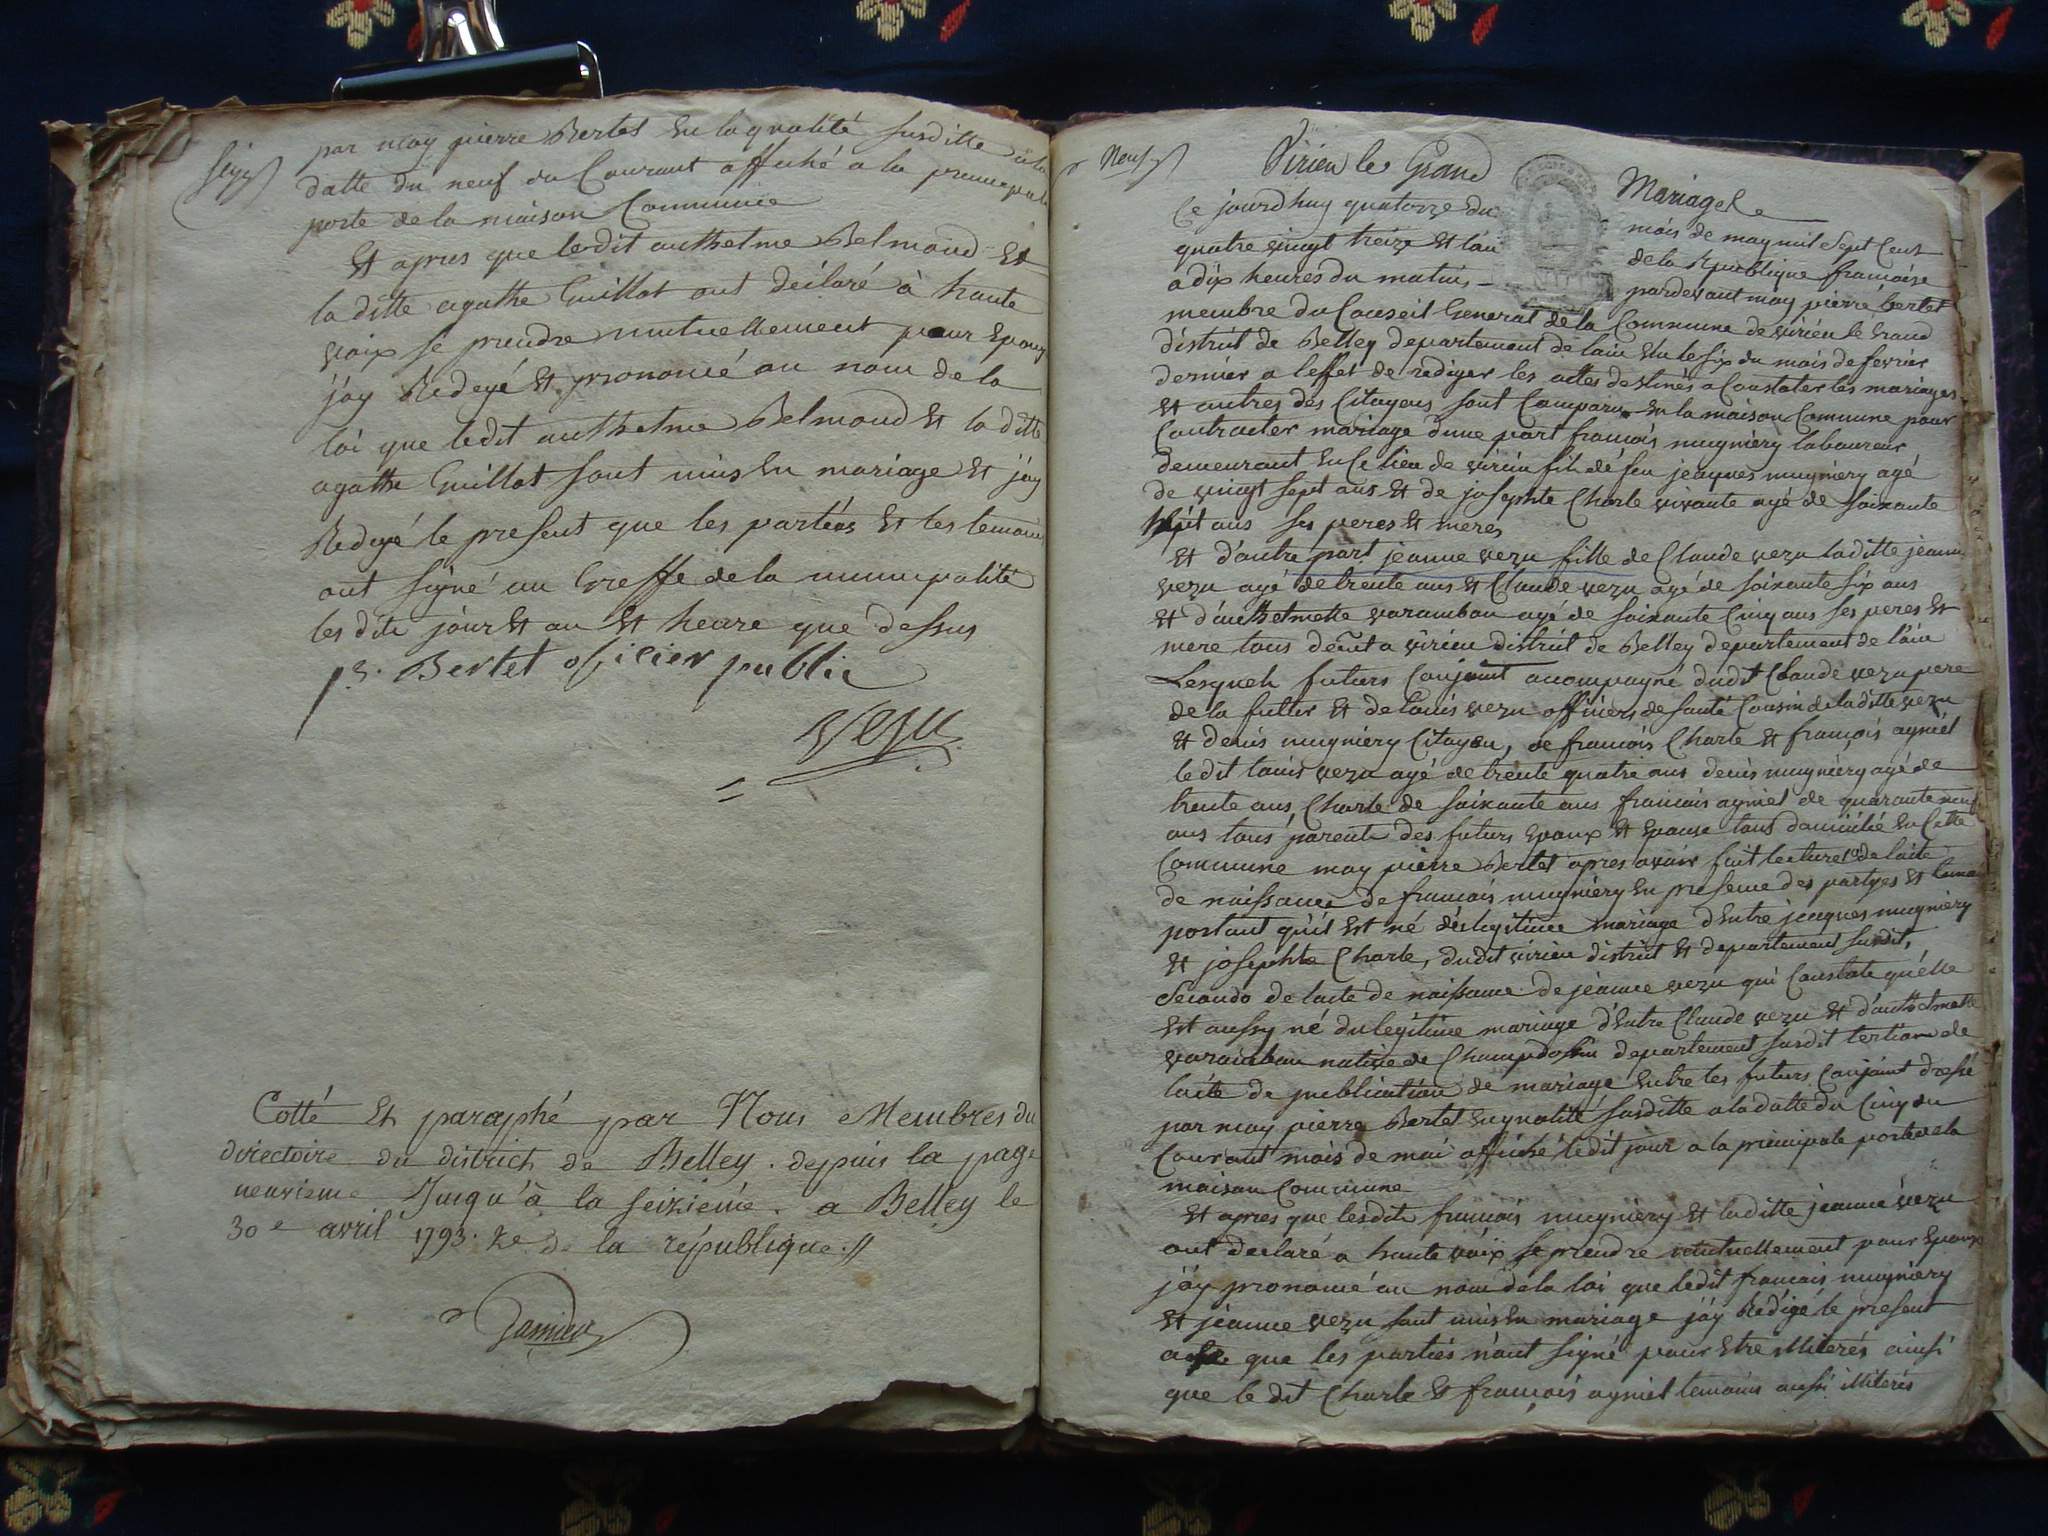 par moy pierre Bertet en la qualité susditte a la
datte du neuf du Courant affiché a la principale
porte de la maison Commune
Et apres que ledit anthelme Belmond Et
la ditte agathe Guillot ont déclaré à haute
voix se prendre mutuellement pour Epoux
j'ay Redegé Et prononcé au nom de la
loi que ledit anthelme Belmond Et la ditte
agathe Guillot sont unis En mariage Et j'ay
Redigé le present que les parties Et les temoins
ont signé au Greffe de la municipalité
les dits jour Et an Et heure que dessus
pe. Bertet oficier public
Vezu
Cotté Et paraphé par Nous Membres du
directoire du district de Belley. depuis la page
neuvieme Jusqu'à la seizieme. a Belley le
30e avril 1793. 2e de la république.//
Neuf
Virieu le Grand
Mariage
Ce jourdhuy quatorze du mois de may mil Sept Cent
quatre vingt treize Et l'an de la Republique francaise
a dix heures du matin pardevant moy pierre bertet
membre du Conseil General de la Commune de virieu le Grand
district de Belley departement de lain Elu le six du mois de fevrier
dernier a l'effet de rediger les actes destinés a Constater les mariages
Et autres des Citoyens sont Comparu En la maison Commune pour
Contracter mariage dune part francois mugniery laboureur
demeurant En Ce lieu de virieu fils de feu jeaques mugniery agé
de vingt sept ans Et de josephte Charle vivante agé de soixante
sept ans ses peres Et meres
Et d'autre part jeanne vezu fille de Claude vezu laditte jeanne
vezu agé de trente ans Et Claude vezu agé de soixante six ans
Et d'anthelmette varambon agé de soixante Cinq ans ses peres Et
mere tous demt a virieu district de Belley departement de l'ain
Lesquels futurs Conjoint acompagné dudit Claude vezu pere
de la future Et de Louis vezu officiers de santé Cousin de laditte vezu
Et denis mugniery Citoyen, de francois Charle Et françois ayniel
ledit Louis vezu agé de trente quatre ans denis mugniery agé de
trente ans, Charle de soixante ans francois ayniel de quarante neuf
ans tous parents des futurs Epoux Et Epouse tous domicilié En Cette
Commune moy pierre Bertet apres avoir fait lecture 1º de lacte
de naissance de francois mugniery En presence des partyes Et temoins
portant qu'il Est né de legitime mariage d'Entre jeaques mugniery
Et josephte Charle, dudit virieu district Et departement susdit,
Secondo de lacte de naissance de jeanne vezu qui Constate qu'elle
Est aussy né du legitime mariage d'Entre Claude vezu Et d'anthelmette
varambon native de departement susdit tertio de
lacte de publication de mariage Entre les futurs Conjoint dressé
par moy pierre Bertet En qualité susditte a la datte du Cinq du
Courant mois de mai affiché ledit jour a la principale porte de la
maison Commune
Et apres que lesdits françois mugniery Et laditte jeanne vezu
ont declaré a haute voix se prendre mutuellement pour Epoux
j'ay prononcé au nom de la loi que ledit francois mugniery
Et jeanne vezu sont unis En mariage j'ay Redigé le present
acte que les parties n'ont signé pour Etre illiterés ainsi
que le dit Charle Et françois ayniel temoins aussi illiterés